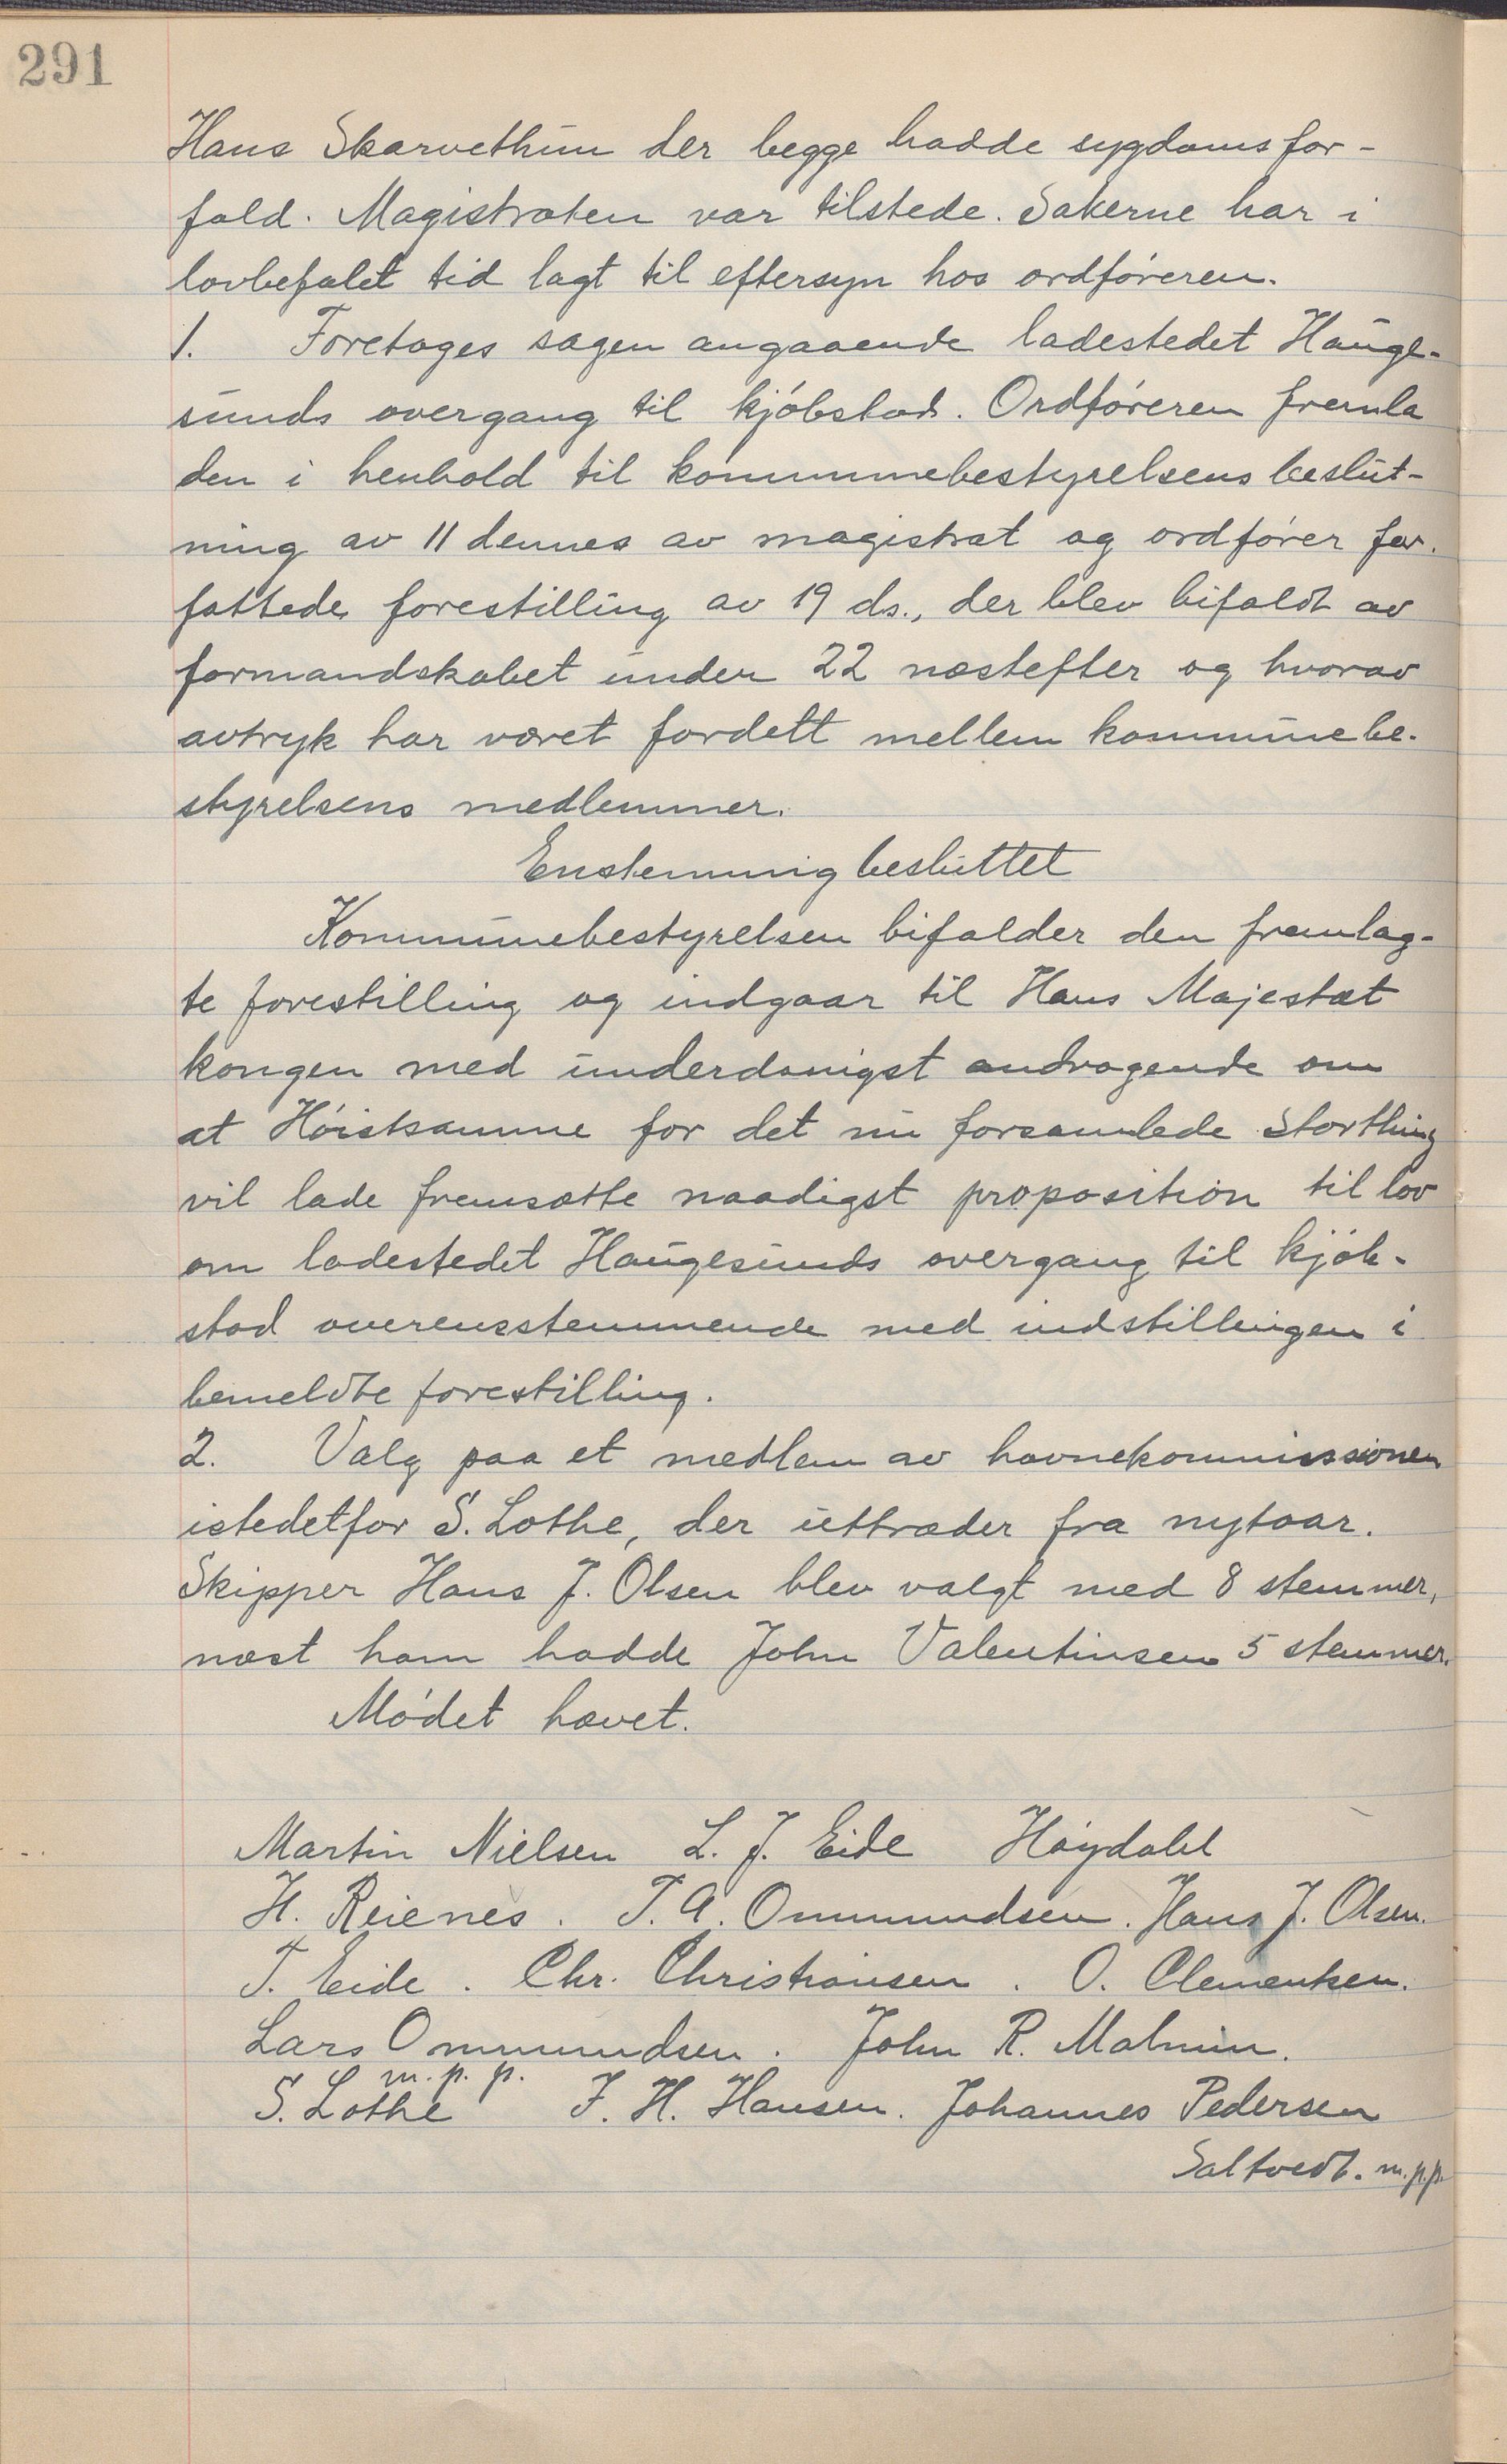 291
Hans Skarvethun der begge hadde sygdomsfor-
fald. Magistraten var tilstede. Sakerne har i
lovbefalet tid lagt til eftersyn hos ordføreren.
1. Foretages sagen angaaende ladestedet Hauge-
sunds overgang til kjøbstad. Ordføreren fremla
den i henhold til kommunebestyrelsens beslut-
ning av 11 dennes av magistrat og ordfører for-
fattede forestilling av 19 ds., der blev bifaldt av
formandskabet under 22 næstefter og hvorav
avtryk har været fordelt mellem kommunebe-
styrelsens medlemmer.
Enstemmig besluttet
Kommunebestyrelsen bifalder den fremlag-
te forestilling og indgaar til Hans Majestæt
kongen med underdanigst andragende om
at Høistsamme for det nu forsamlede Storthing
vil lade fremsætte naadigst proposition til lov
om ladestedet Haugesunds overgang til kjøb-
stad overensstemmende med indstillingen i
bemeldte forestilling.
2. Valg paa et medlem av havnekommissionen
istedetfor S. Lothe, der uttræder fra nytaar.
Skipper Hans J. Olsen blev valgt med 8 stemmer,
næst ham hadde John Valentinsen 5 stemmer.
Mødet hævet.
Martin Nielsen L. J. Eide Høydahl
H. Reienes. T. A. Ommundsen. Hans J. Olsen.
T. Eide. Chr. Christiansen. O. Clementsen.
Lars Ommundsen. John R. Malmin.
m.p.p.
S. Lothe J. H. Hansen. Johannes Pedersen
Saltvedt. m.p.p.